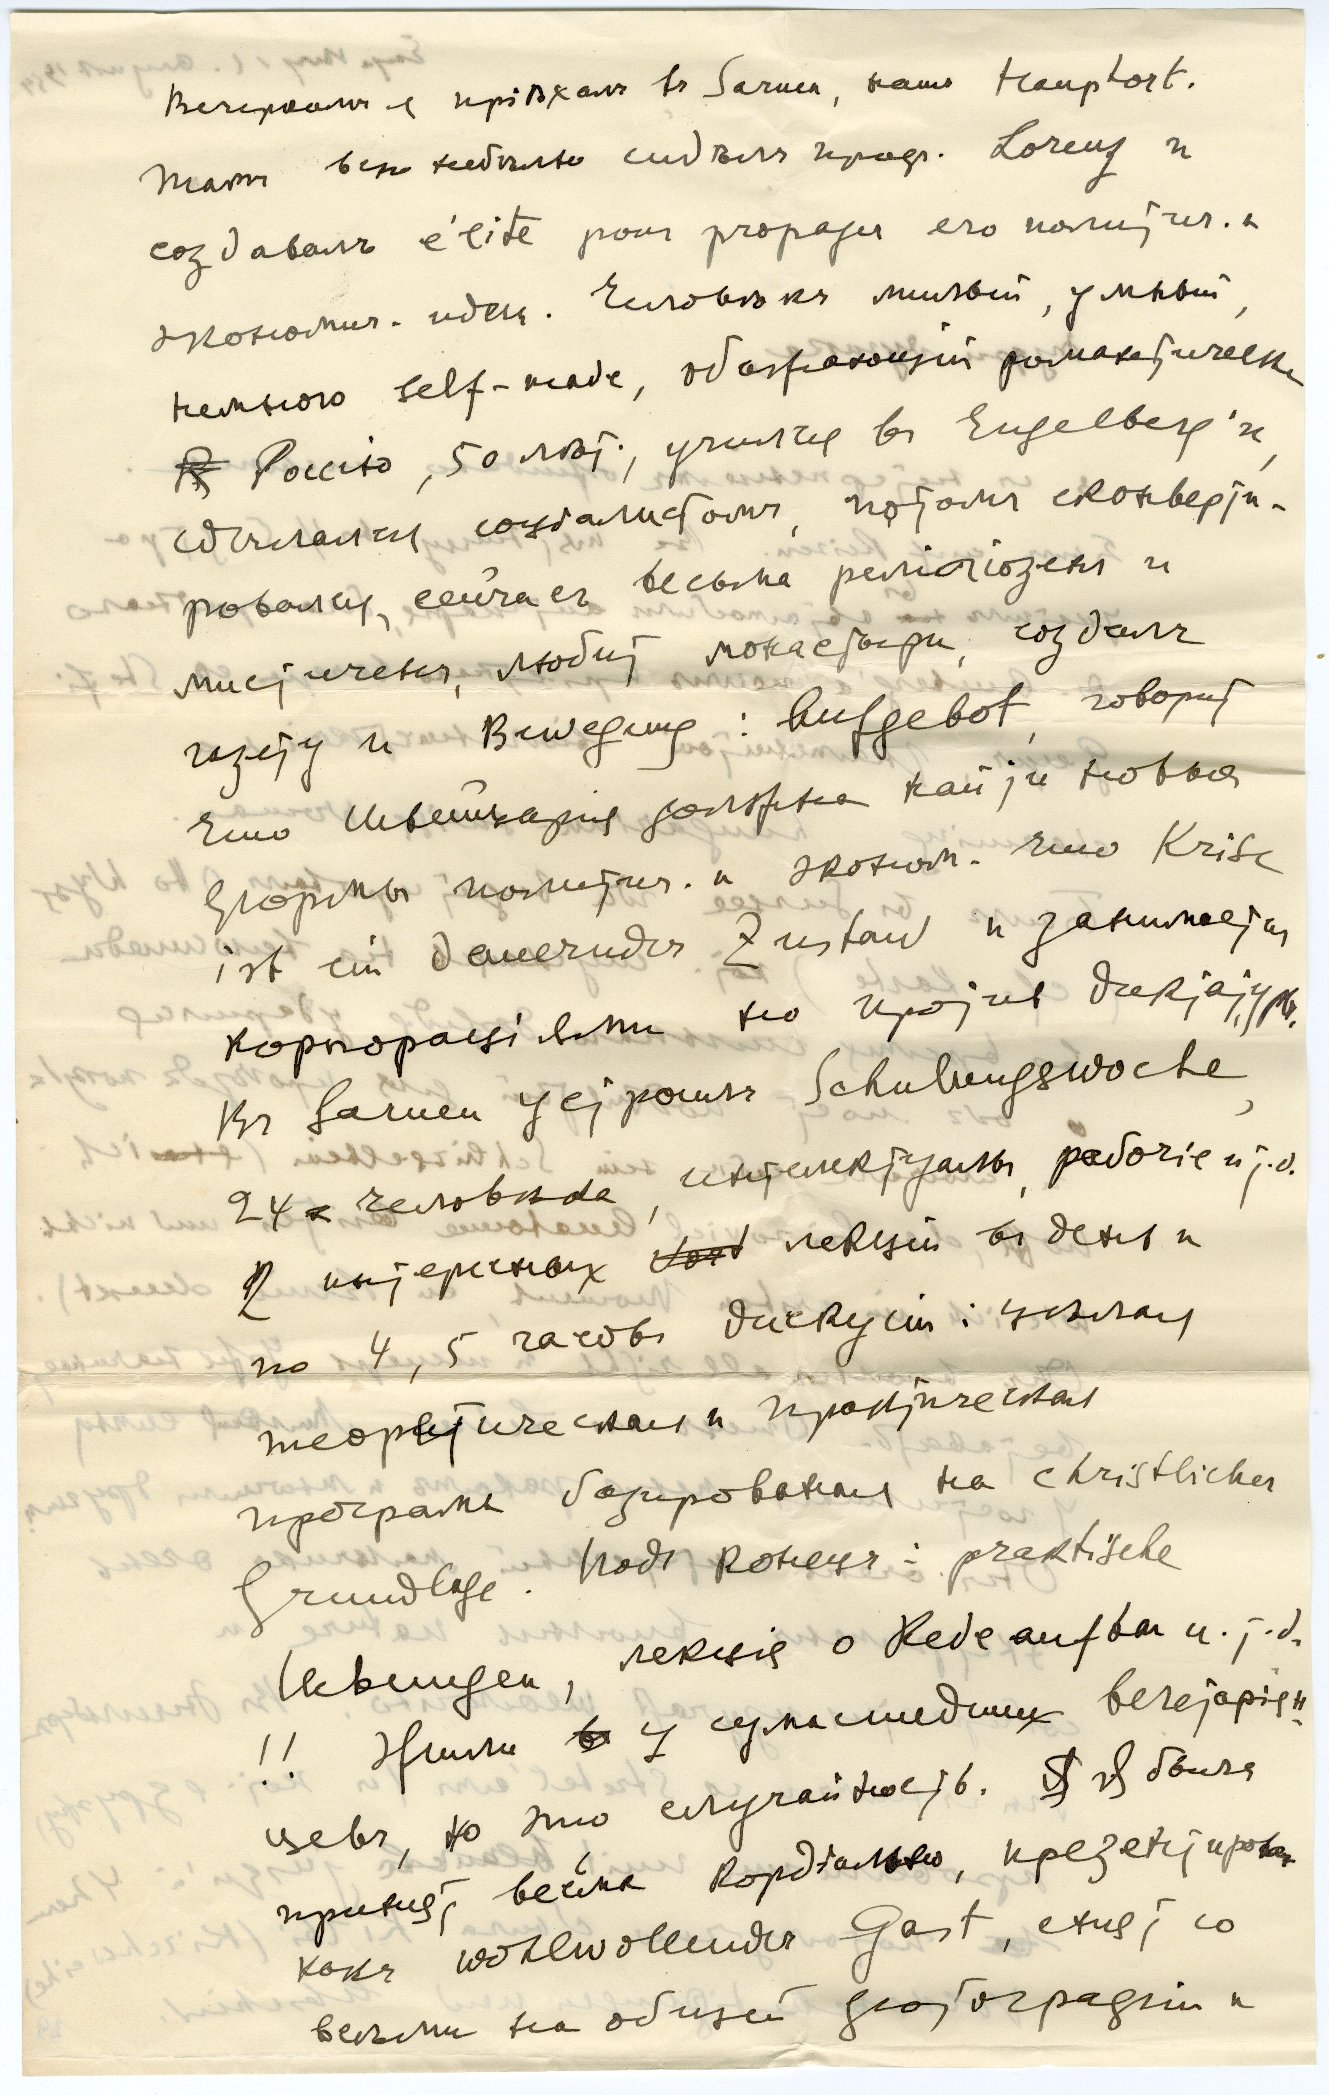 Вечеромъ я прiѣхалъ въ Sarnen, нашъ Hauptort.
Тамъ всю недѣлю сидѣлъ проф. Lorenz и
создавалъ élite pour propager его политич. и
экономич. идеи. Человѣкъ милый, умный,
немного self-made, обожающiй романтически
Россiю, 50 лѣт, учился въ Engelberg'ѣ,
сдѣлался соцiалистомъ, потомъ сконверти-
ровался, сейчасъ весьма религiозенъ и
мистиченъ, любит монастыри, создалъ
газету и Bewegung: Aufgebot, говорит
что Швейцарiя должна найти новыя
формы политич. и эконом. что Krise
ist ein dauernder Zustand и занимается
корпорацiями но против диктатуры.
Въ Sarnen устроилъ Schulungswoche,
24 человѣка, интелектуалы, рабочiе и т.д.
2 интересных лекцiй въ день и
по 4, 5 часовъ дискусiи: цѣлая
теоретическая и практическая
програма базированная на christlicher
Grundlage. Подъ конецъ: praktische
Uebungen, лекцiя о Redeaufbau и.т.д.
!! Жили у сумасшедших вегетарiян-
цевъ, но это случайность. Я была
принят весьма кордiально, презентирован
какъ wohlwollender Gast, снят со
всѣми на общей фотографiи и